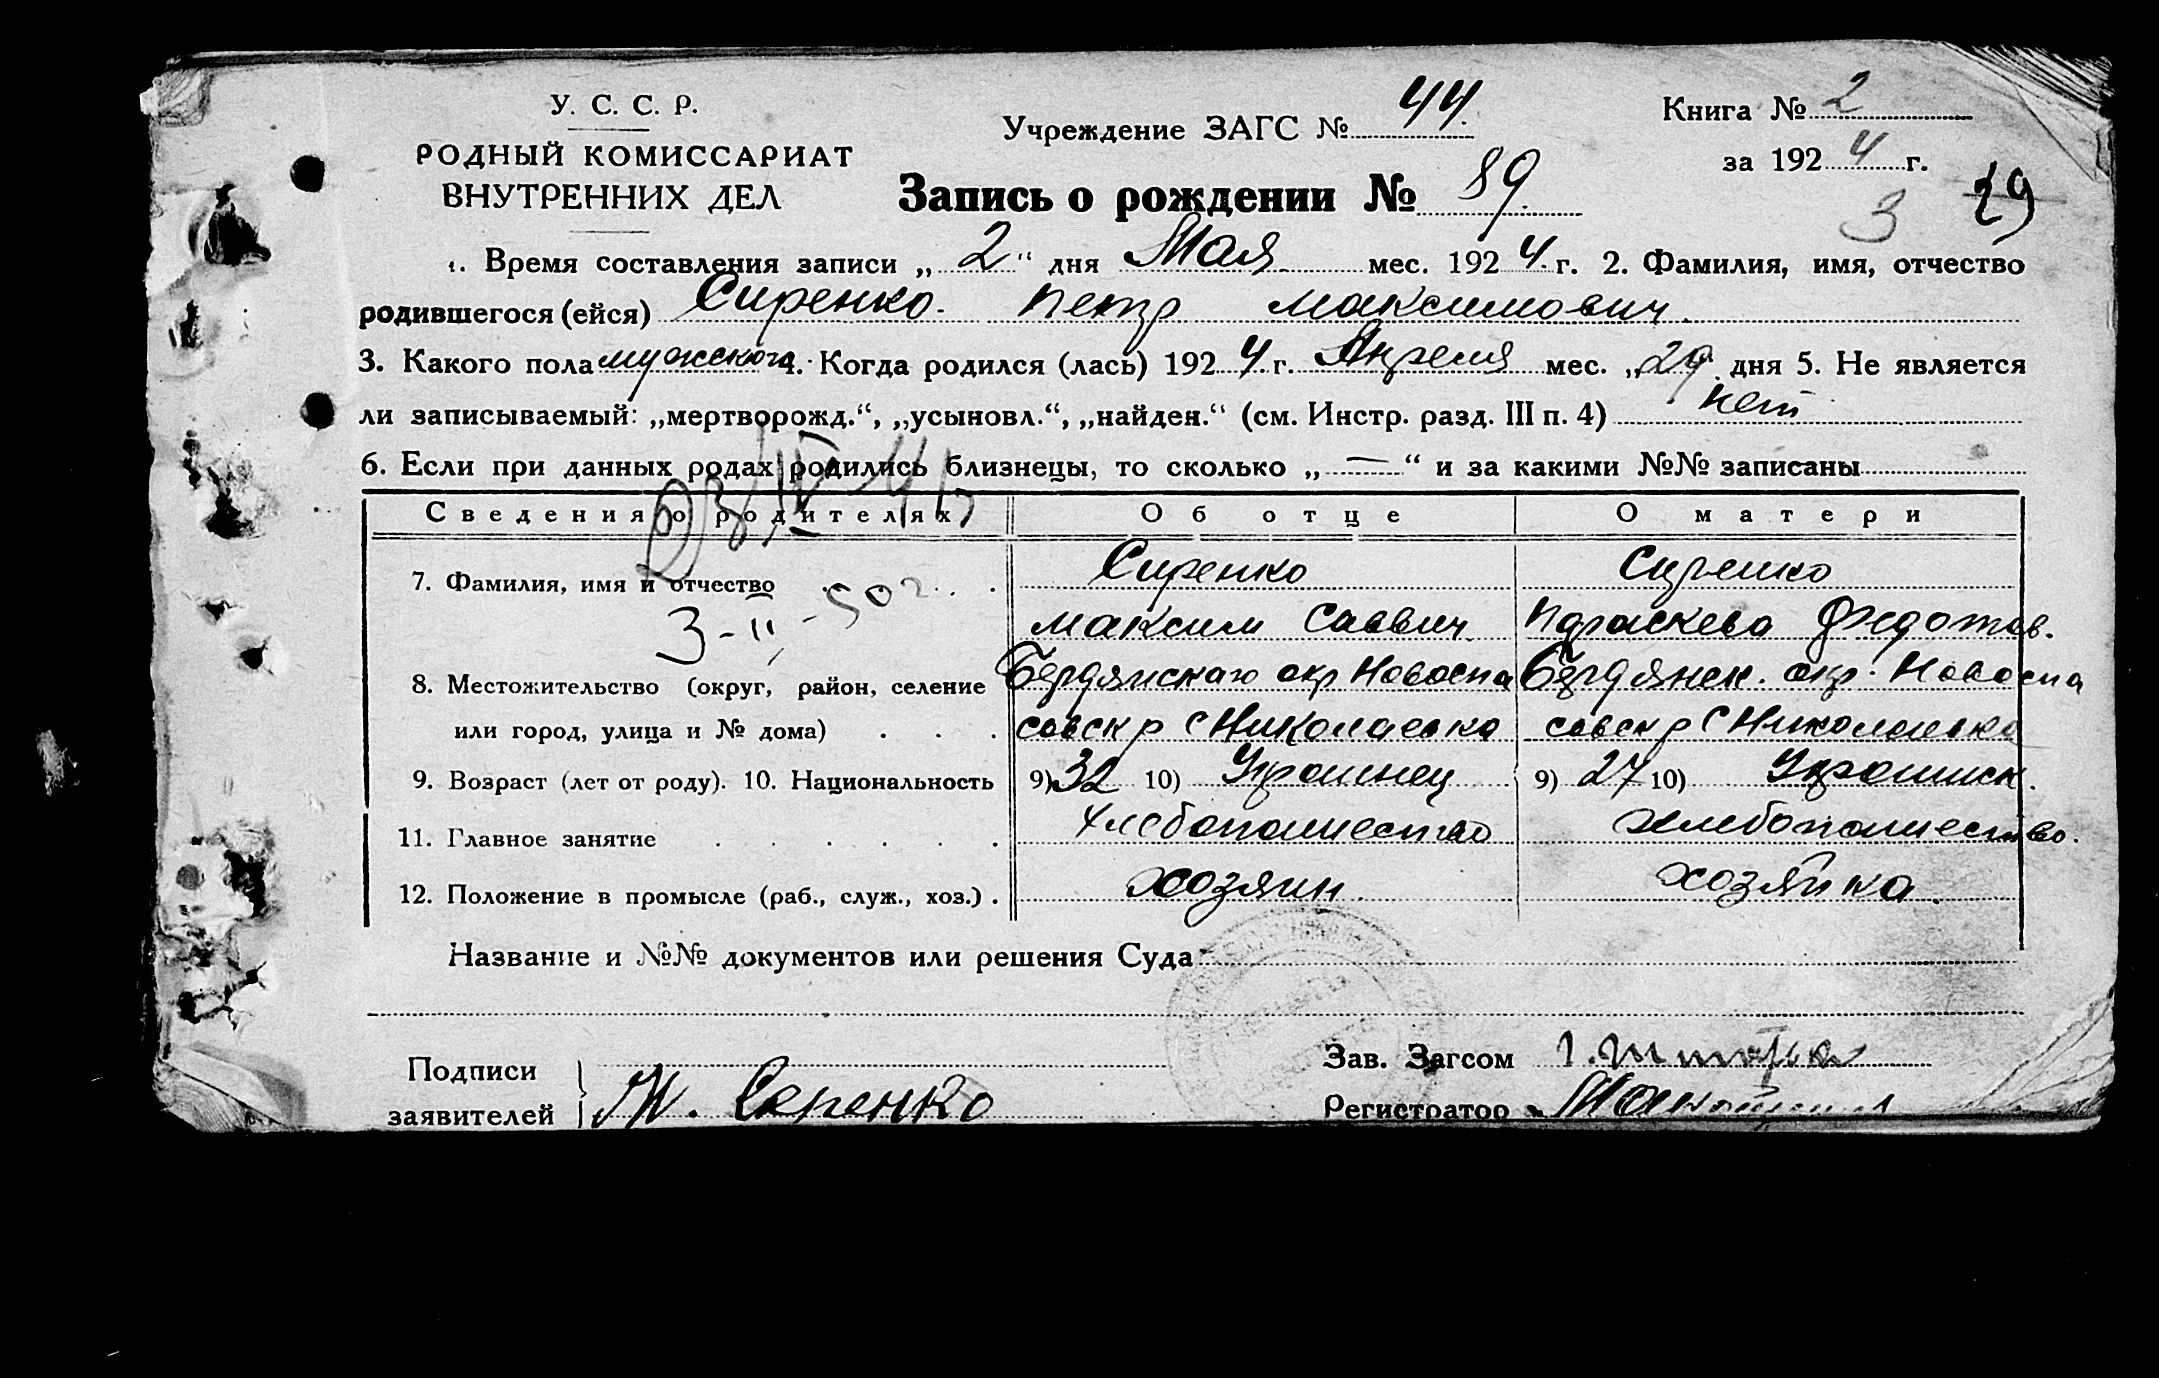 У. С. С. Р.
РОДНЫЙ КОМИССАРИАТ
ВНУТРЕННИХ ДЕЛ
Учреждение ЗАГС № 44.
Книга № 2
за 1924 г.
Запись о рождении № 89.
3 29
1. Время составления записи „2“ дня Мая мес. 1924 г. 2. Фамилия, имя, отчество
родившегося (ейся) Сиренко Петр Максимович.
3. Какого пола мужского 4. Когда родился (лась) 1924 г. Апреля мес. „29 дня 5. Не является
ли записываемый: „мертворожд.“, „усыновл.“, „найден.“ (см. Инстр. разд. III п. 4) нет
6. Если при данных родах родились близнецы, то сколько „—“ и за какими №№ записаны
Сведения о родителях Об отце О матери
7. Фамилия, имя и отчество Сиренко Сиренко
3-II-50 г. Максим Саввич Параскева Федотов.
8. Местожительство (округ, район, селение Бердянскаго окр Новоспа Бердянск. окр. Новоспа
или город, улица и № дома) совск р С Николаевка совск р С Николаевка
9. Возраст (лет от роду). 10. Национальность 9) 32 10) Украинец 9) 27 10) Украинск.
11. Главное занятие хлебопашество хлебопашество.
12. Положение в промысле (раб., служ., хоз.) хозяин. хозяйка.
Название и №№ документов или решения Суда:
Подписи
заявителей М. Серенко
Зав. Загсом
Регистратор